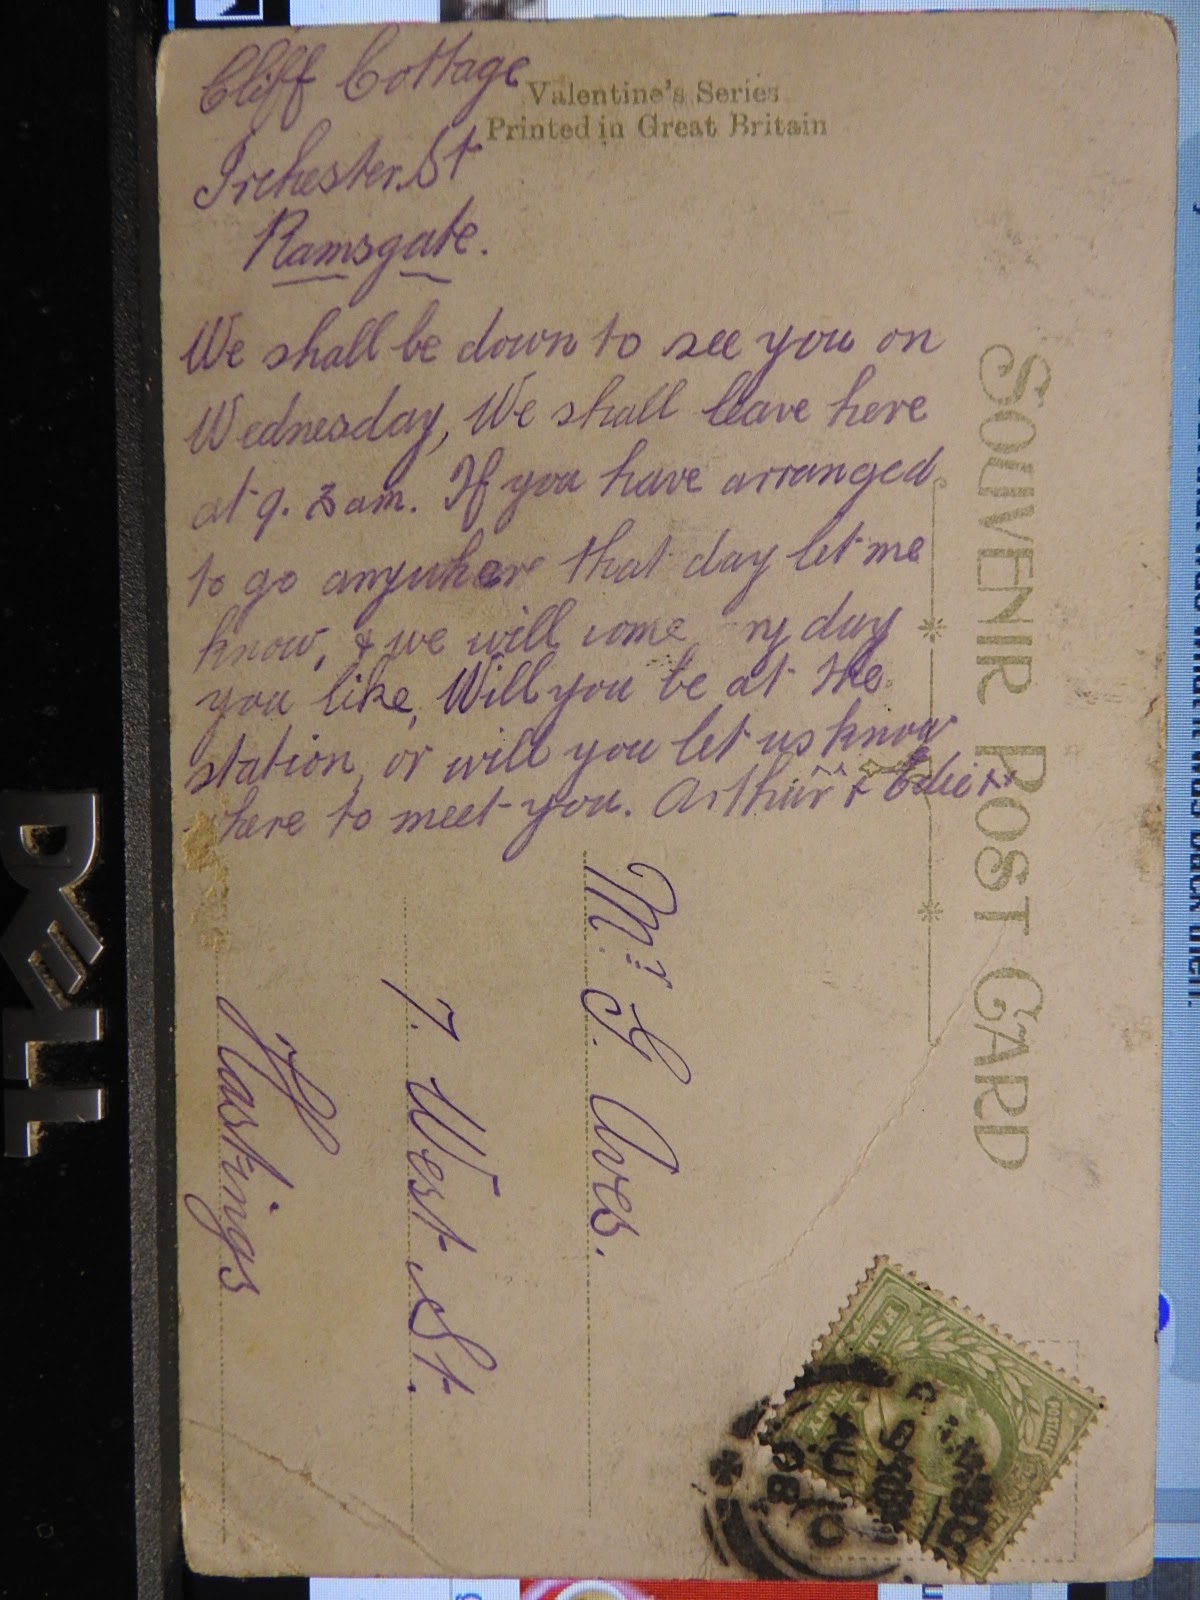 Cliff Cottage
Irchester. St
Ramsgate.
Valentine's Series
Printed in Great Britain
We shall be down to see you on
Wednesday, We shall leave here
at 9. 3 am. If you have arranged
to go anywhere that day let me
know, & we will come ny day
you like, Will you be at the
station, or will you let us know
here to meet you. Arthur & Edie xx
SOUVENIR POST CARD
Mrs S. Aves.
7. West St.
Hastings
POSTAGE
DELL